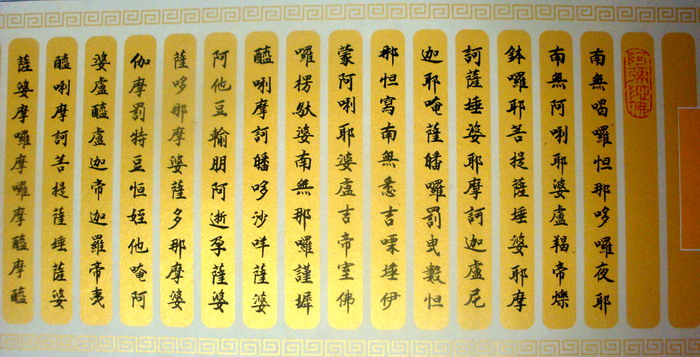 南無喝囉怛那哆囉夜耶
南無阿唎耶婆盧羯帝爍
鉢囉耶菩提薩埵婆耶摩
訶薩埵婆耶摩訶迦盧尼
迦耶唵薩皤囉罰曳數怛
那怛寫南無悉吉㗚埵伊
蒙阿唎耶婆盧吉帝室佛
囉楞馱婆南無那囉謹墀
醯唎摩訶皤哆沙咩薩婆
阿他豆輸朋阿逝孕薩婆
薩哆那摩婆薩多那摩婆
伽摩罰特豆怛姪他唵阿
婆盧醯盧迦帝迦羅帝夷
醯唎摩訶菩提薩埵薩婆
薩婆摩囉摩囉摩醯摩醯